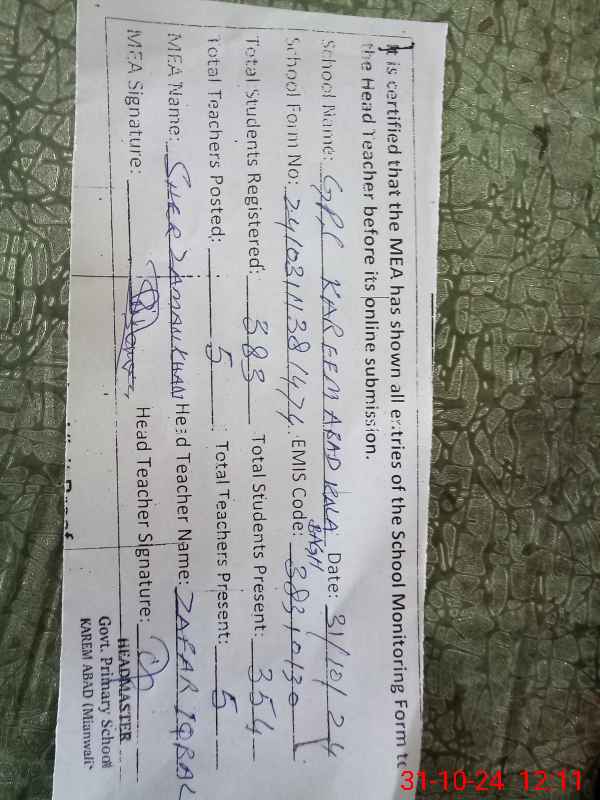 It is certified that the MEA has shown all entries of the School Monitoring Form to
the Head Teacher before its online submission.
School Name: GPS KAREEM ABAD Date: 31/10/24
BAGH
School Form No: EMIS Code: 38310130
Total Students Registered: 383 Total Students Present: 354
Total Teachers Posted: 5 Total Teachers Present: 5
MEA Name: SHER ZAMAN KHAN Head Teacher Name: ZAFAR IQBAL
MEA Signature: Head Teacher Signature:
HEADMASTER
Govt. Primary School
KAREM ABAD (Mianwali)
31-10-24 12:11